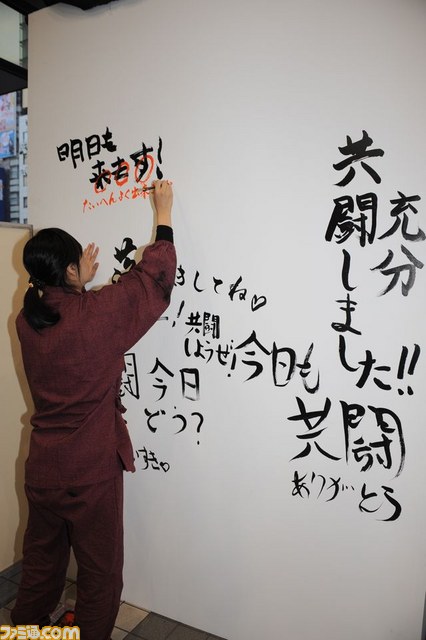 充分
共闘しました!!
明日も
来ます!
たいへんよく出来
きしてね♡
ー!共闘
しようぜ!
今日も
共闘
ありがとう
闘
今日
どう?
すき♡
ファミ通.com